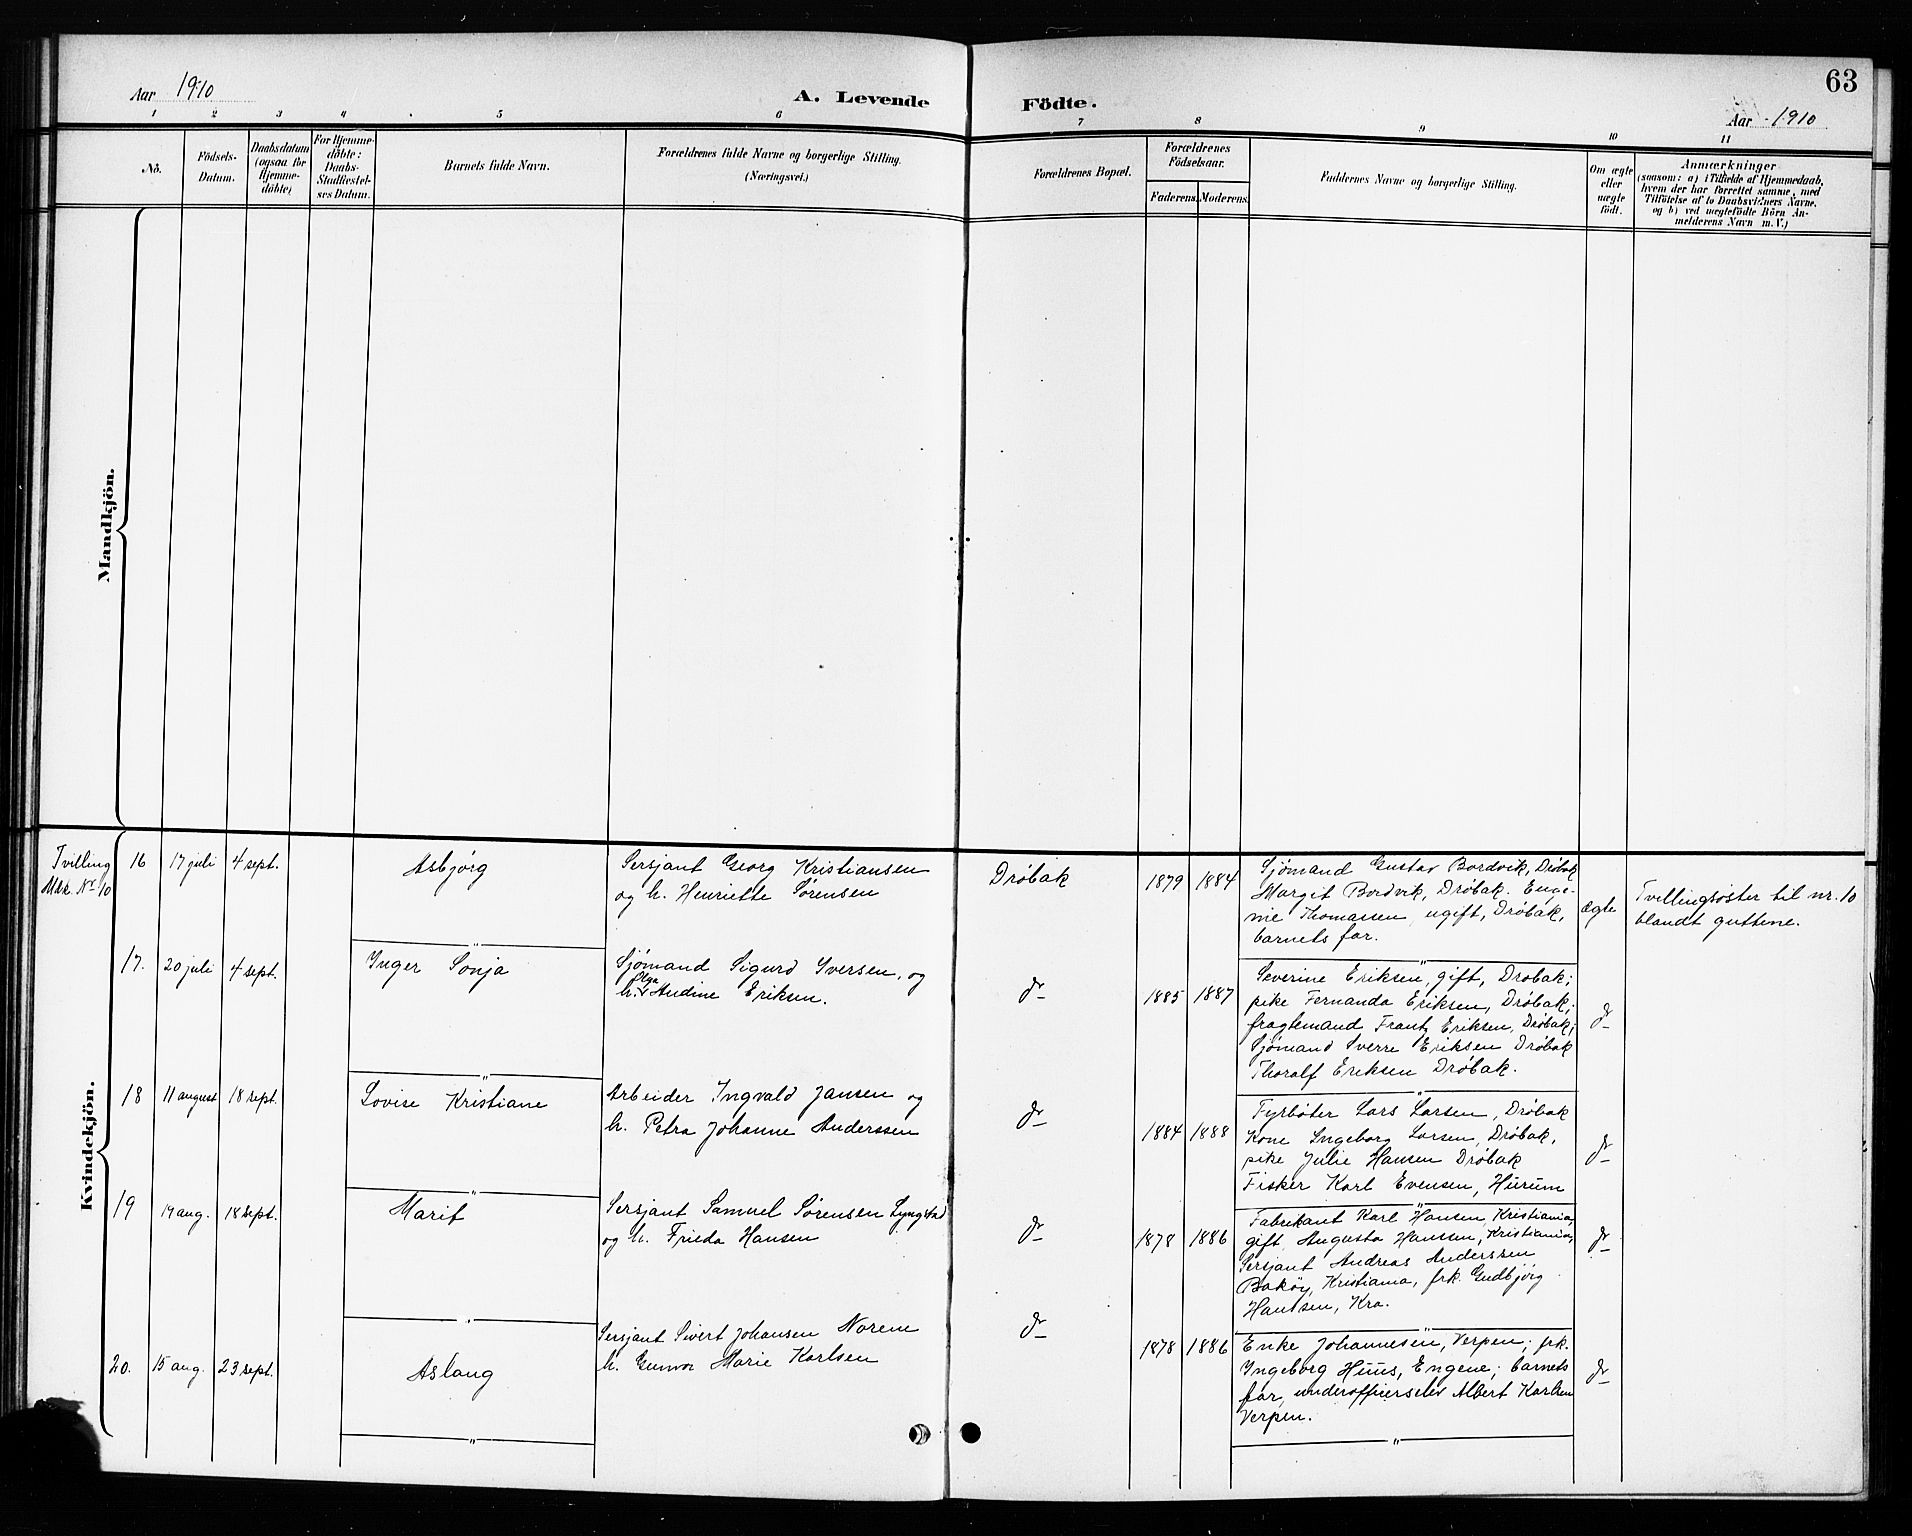 63
Aar 1910
A. Levende Födte.
Aar 1910
1 2 3 4 5 6 7 8 9 10 11
No.
Födsels-
Datum.
Daabsdatum
(ogsaa for
Hjemme-
döbte)
For Hjemme-
döbte:
Daabs-
Stadfæstel-
ses Datum.
Barnets fulde Navn.
Forældrenes fulde Navne og borgerlige Stilling.
(Næringsvei.)
Forældrenes Bopæl.
Forældrenes
Födselsaar.
Faderens. Moderens.
Faddernes Navne og borgerlige Stilling.
Om ægte
eller
uægte
født.
Anmærkninger
(saasom: a) i Tilfælde af Hjemmedaab,
hvem der har forrettet samme, med
Tilföielse af to Daabsvidners Navne,
og b) ved uægtefödte Börn An-
melderens Navn m. V.)
Mandkjön.
Kvindekjön.
Tvilling
Mk. Nr 10
16 17 juli 4 sept.
Asbjörg
Sersjant Georg Kristiansen
og h. Henriette Sørensen
Dröbak
1879 1884
Sjömand Gustav Bordvik, Dröbak
Margit Bordvik, Dröbak. Euge-
nie Thomassen, ugift, Dröbak,
barnets far.
ægte
Tvillingsöster til nr. 10
blandt guttene.
17. 20 juli 4 sept.
Inger Sonja
Sjömand Sigurd Iversen, og
Olga
h. Andine Eriksen.
do
1885 1887
Severine Eriksen, gift, Dröbak;
pike Fernanda Eriksen, Dröbak;
fragtemand Frantz Eriksen, Dröbak;
Sjömand Sverre Eriksen Dröbak
Thoralf Eriksen Dröbak.
do
18 11 august 18 sept.
Lovise Kristiane
Arbeider Ingvald Jansen og
h. Petra Johanne Anderssen
do
1884 1888
Fyrböter Lars Larsen, Dröbak
Kone Ingeborg Larsen, Dröbak,
pike Julie Hansen Dröbak
Fisker Karl Evensen, Hurum
do
19 14 aug. 18 sept.
Marit
Sersjant Samuel Sørensen Lyngstad
og h. Frieda Hansen
do
1878 1886
Fabrikant Karl Hansen, Kristiania,
gift Augusta Hanssen, Kristiania,
Sersjant Andreas Anderssen
Bakøy, Kristiania, frk. Gudbjörg
Hanssen, Kra.
do
20. 15 aug. 23 sept.
Aslaug
Sersjant Sivert Johansen Norene
h. Gunvor Marie Karlsen
do
1878 1886
Enke Johannesen, Verpen; frk.
Ingeborg Huus, Engene; barnets
far, underofficerselev Albert Karlsen
Verpen.
do